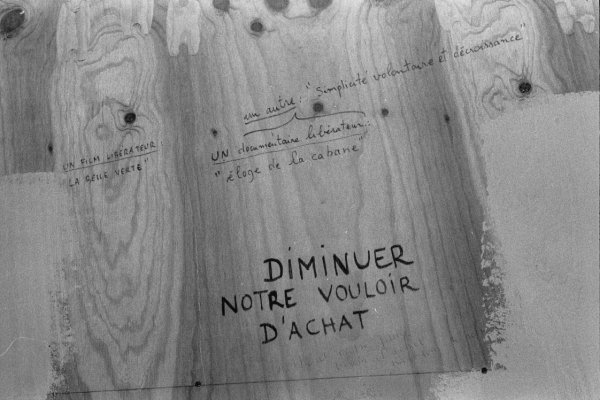 un autre : "Simplicité volontaire et décroissance"
UN documentaire libérateur :
"éloge de la cabane"
UN FILM LIBÉRATEUR
LA BELLE VERTE"
DIMINUER
NOTRE VOULOIR
D'ACHAT